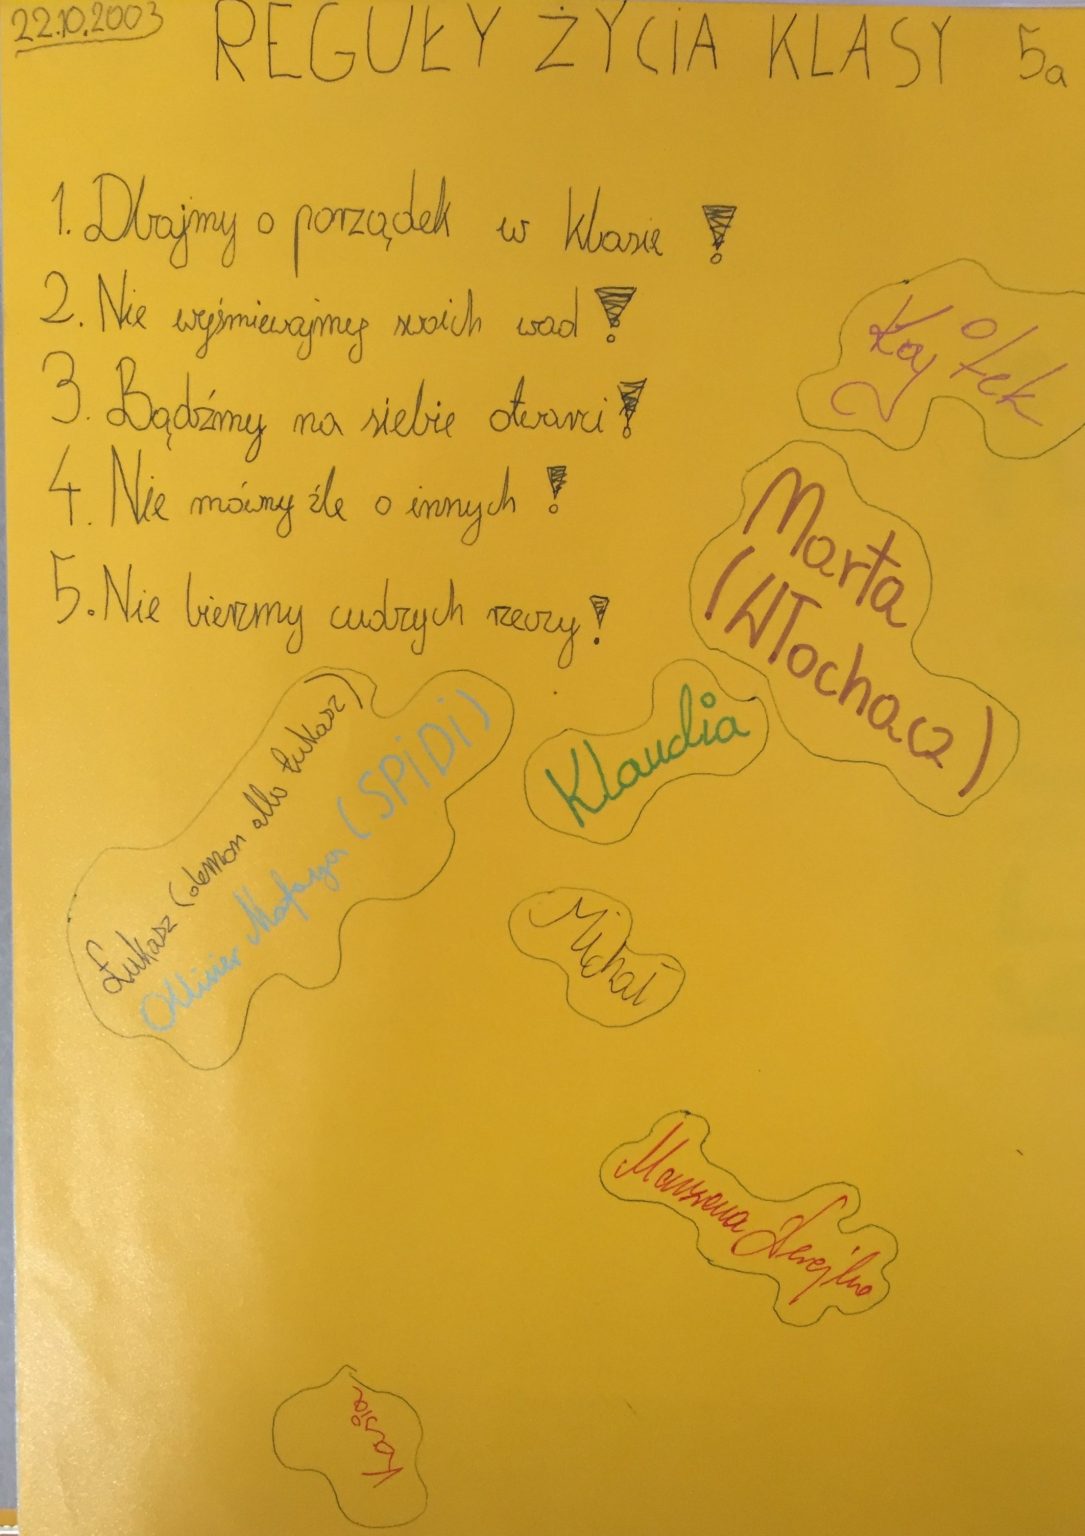 22.10.2003
REGUŁY ŻYCIA KLASY 5a
1. Dbajmy o porządek w klasie!
2. Nie wyśmiewajmy swoich wad!
3. Bądźmy na siebie otwarci!
4. Nie mówmy źle o innych!
5. Nie bierzmy cudzych rzeczy!
Kojotek
Marta
(Włochacz)
Klaudia
Łukasz (demon albo Łukasz)
Oliwier (SPiDi)
Michał
Marzena
Kasia